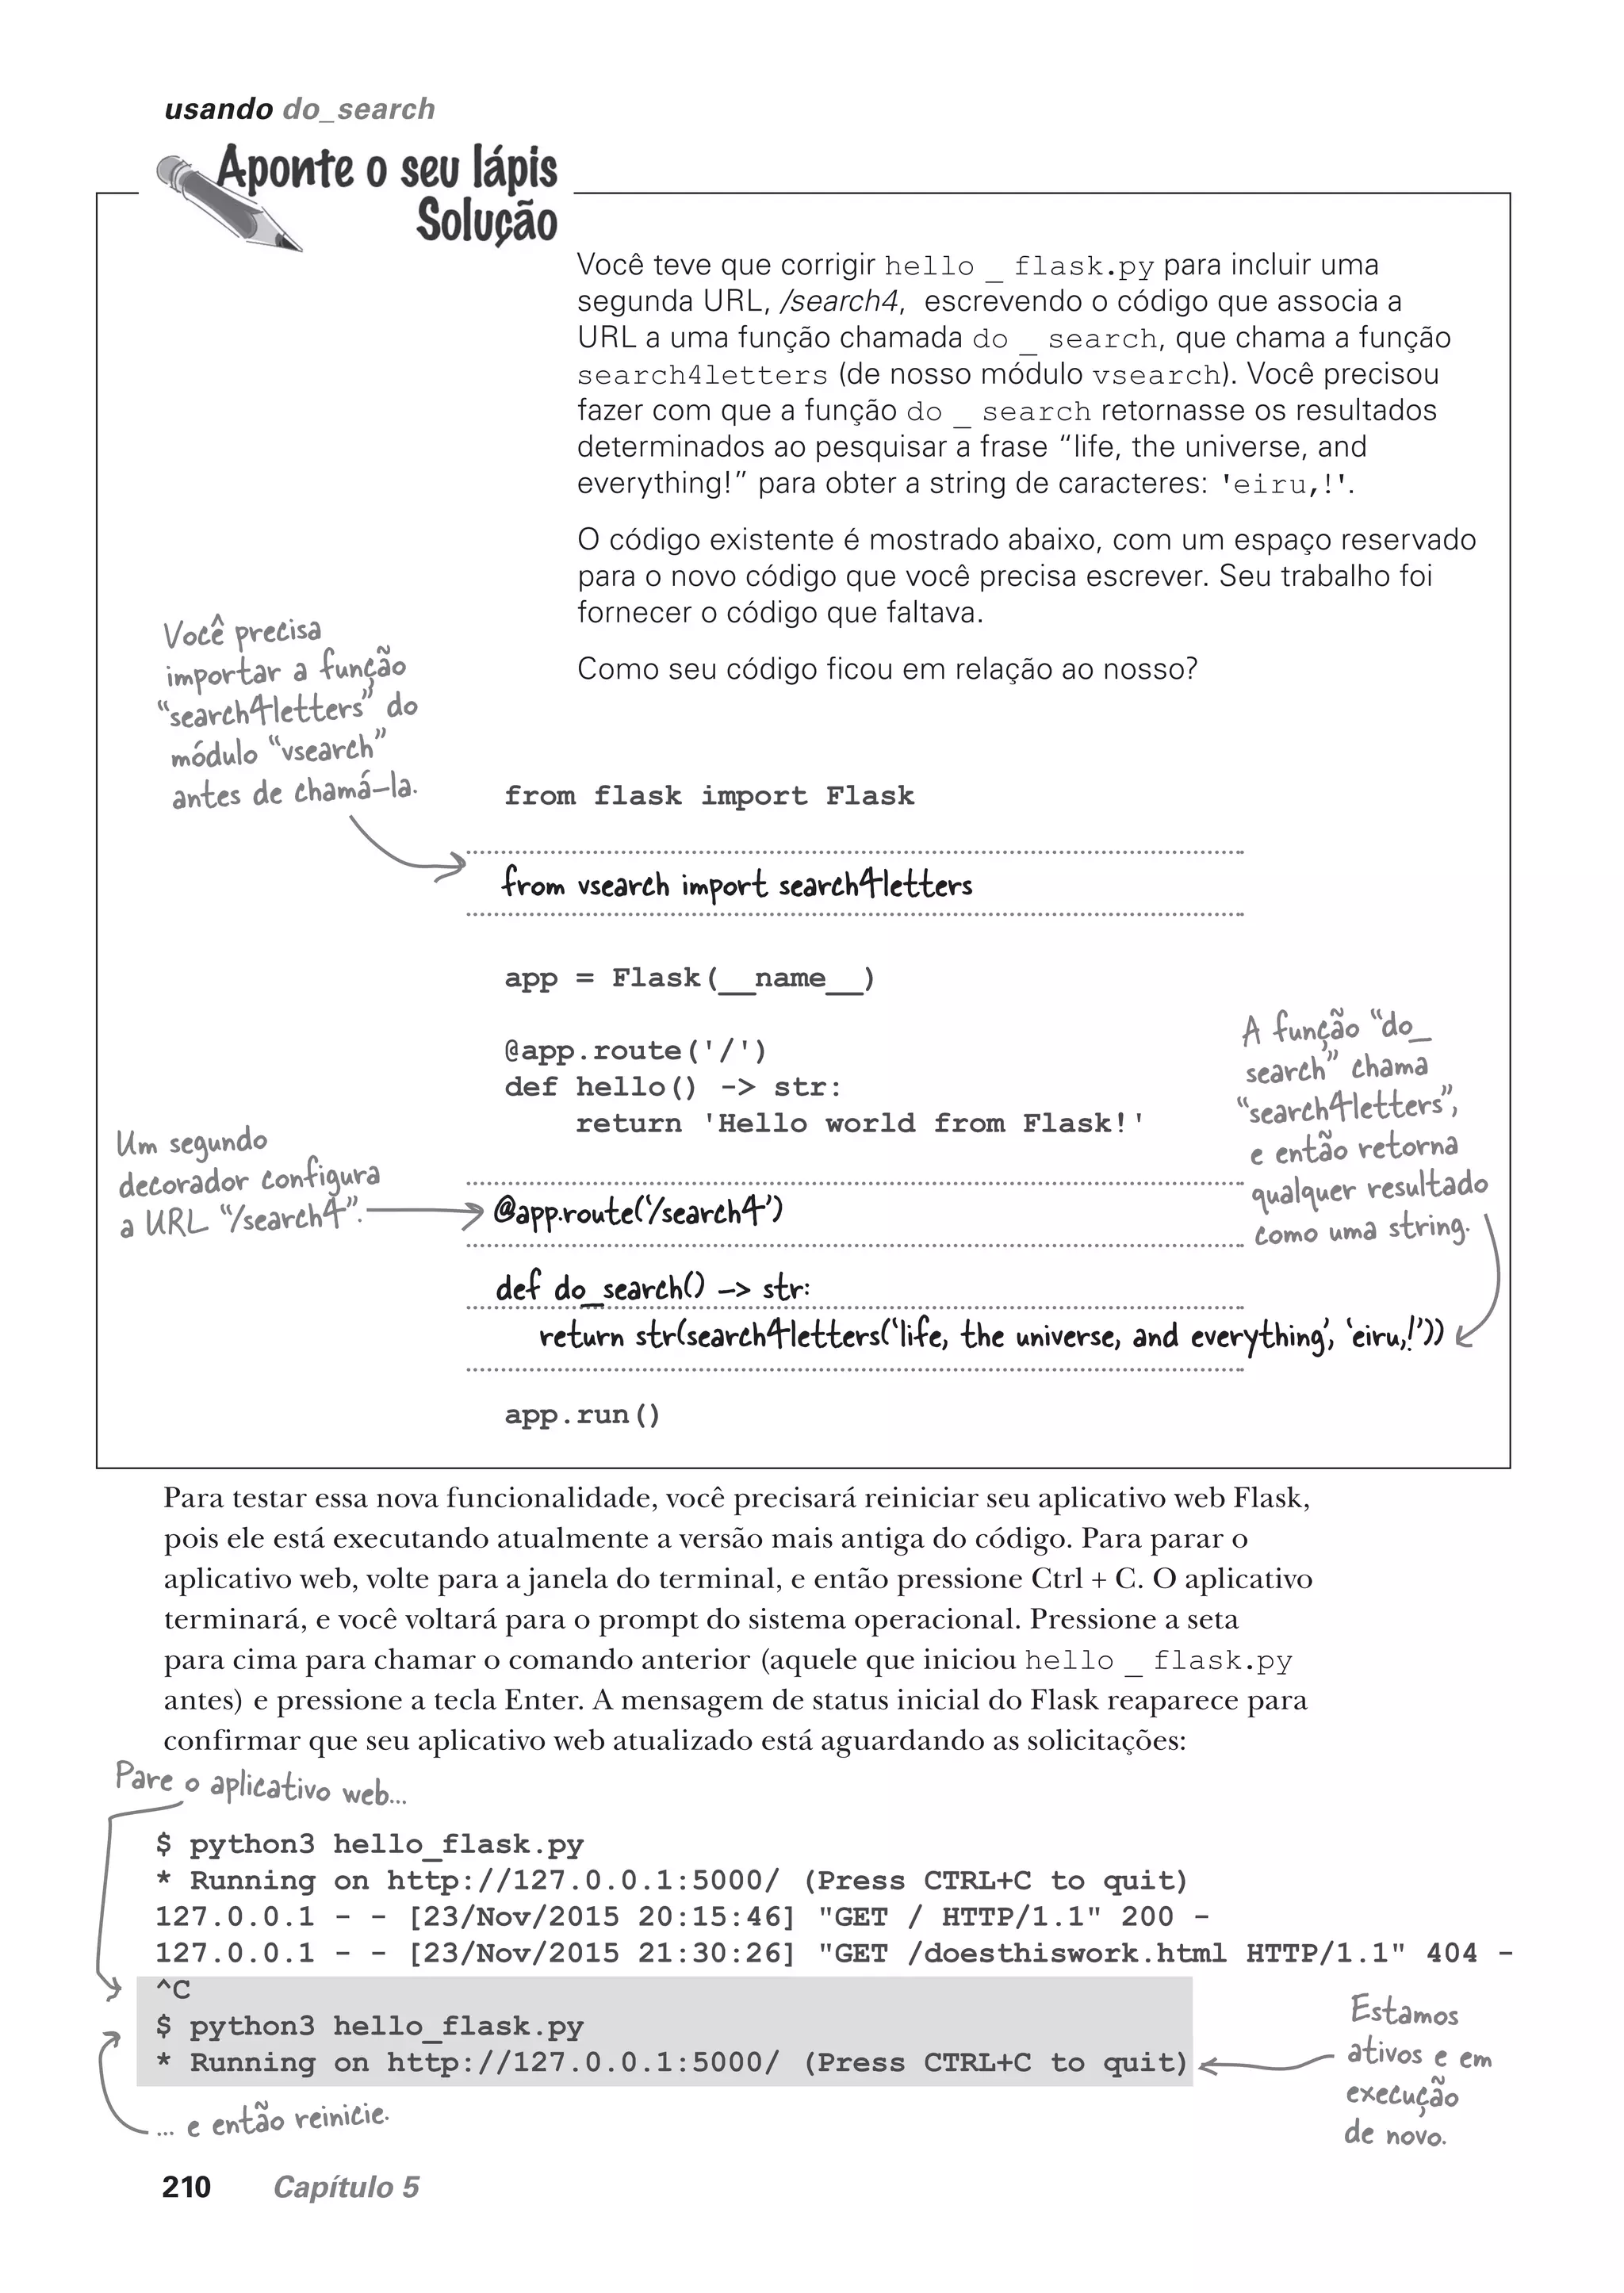 usando do_search
Aponte o seu lápis
Solução
Você teve que corrigir hello _ flask.py para incluir uma
segunda URL, /search4, escrevendo o código que associa a
URL a uma função chamada do _ search, que chama a função
search4letters (de nosso módulo vsearch). Você precisou
fazer com que a função do _ search retornasse os resultados
determinados ao pesquisar a frase “life, the universe, and
everything!” para obter a string de caracteres: 'eiru,!'.
O código existente é mostrado abaixo, com um espaço reservado
para o novo código que você precisa escrever. Seu trabalho foi
fornecer o código que faltava.
Como seu código ficou em relação ao nosso?
Você precisa
importar a função
“search4letters” do
módulo “vsearch”
antes de chamá-la.
from flask import Flask
from vsearch import search4letters
app = Flask(__name__)
@app.route('/')
def hello() -> str:
    return 'Hello world from Flask!'
A função “do_
search” chama
“search4letters”,
e então retorna
qualquer resultado
como uma string.
Um segundo
decorador configura
a URL “/search4”.
@app.route(‘/search4’)
def do_search() -> str:
    return str(search4letters(‘life, the universe, and everything’, ‘eiru,!’))
app.run()
Para testar essa nova funcionalidade, você precisará reiniciar seu aplicativo web Flask,
pois ele está executando atualmente a versão mais antiga do código. Para parar o
aplicativo web, volte para a janela do terminal, e então pressione Ctrl + C. O aplicativo
terminará, e você voltará para o prompt do sistema operacional. Pressione a seta
para cima para chamar o comando anterior (aquele que iniciou hello _ flask.py
antes) e pressione a tecla Enter. A mensagem de status inicial do Flask reaparece para
confirmar que seu aplicativo web atualizado está aguardando as solicitações:
Pare o aplicativo web...
$ python3 hello_flask.py
* Running on http://127.0.0.1:5000/ (Press CTRL+C to quit)
127.0.0.1 - - [23/Nov/2015 20:15:46] "GET / HTTP/1.1" 200 -
127.0.0.1 - - [23/Nov/2015 21:30:26] "GET /doesthiswork.html HTTP/1.1" 404 -
^C
$ python3 hello_flask.py
* Running on http://127.0.0.1:5000/ (Press CTRL+C to quit)
Estamos
ativos e em
execução
de novo.
... e então reinicie.
210 Capítulo 5